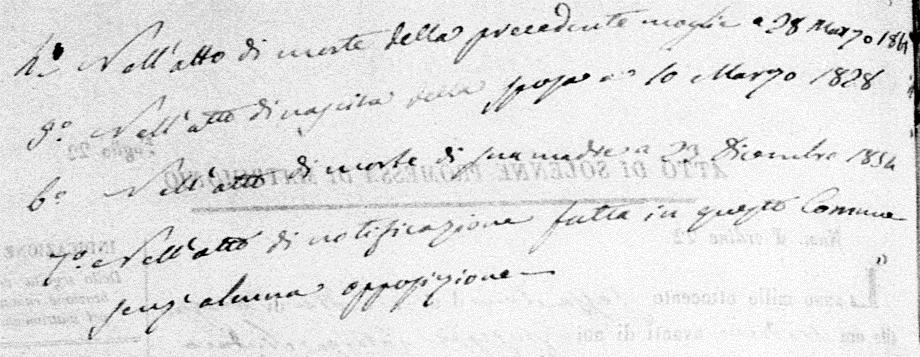 4º Nell'atto di morte della precedente moglie a 28 Marzo 184
5º Nell'atto di nascita della sposa a 10 Marzo 1828
6º Nell'atto di morte di sua madre a 23 Dicembre 1854
7º Nell'atto di notificazione fatta in questo Comune
senz'alcuna opposizione
ATTO DI SOLENNE PROMESSA DI MATRIMONIO
Luglio 22
Num. d'ordine 22
INDICAZIONE
L'anno mille ottocento
avanti di noi